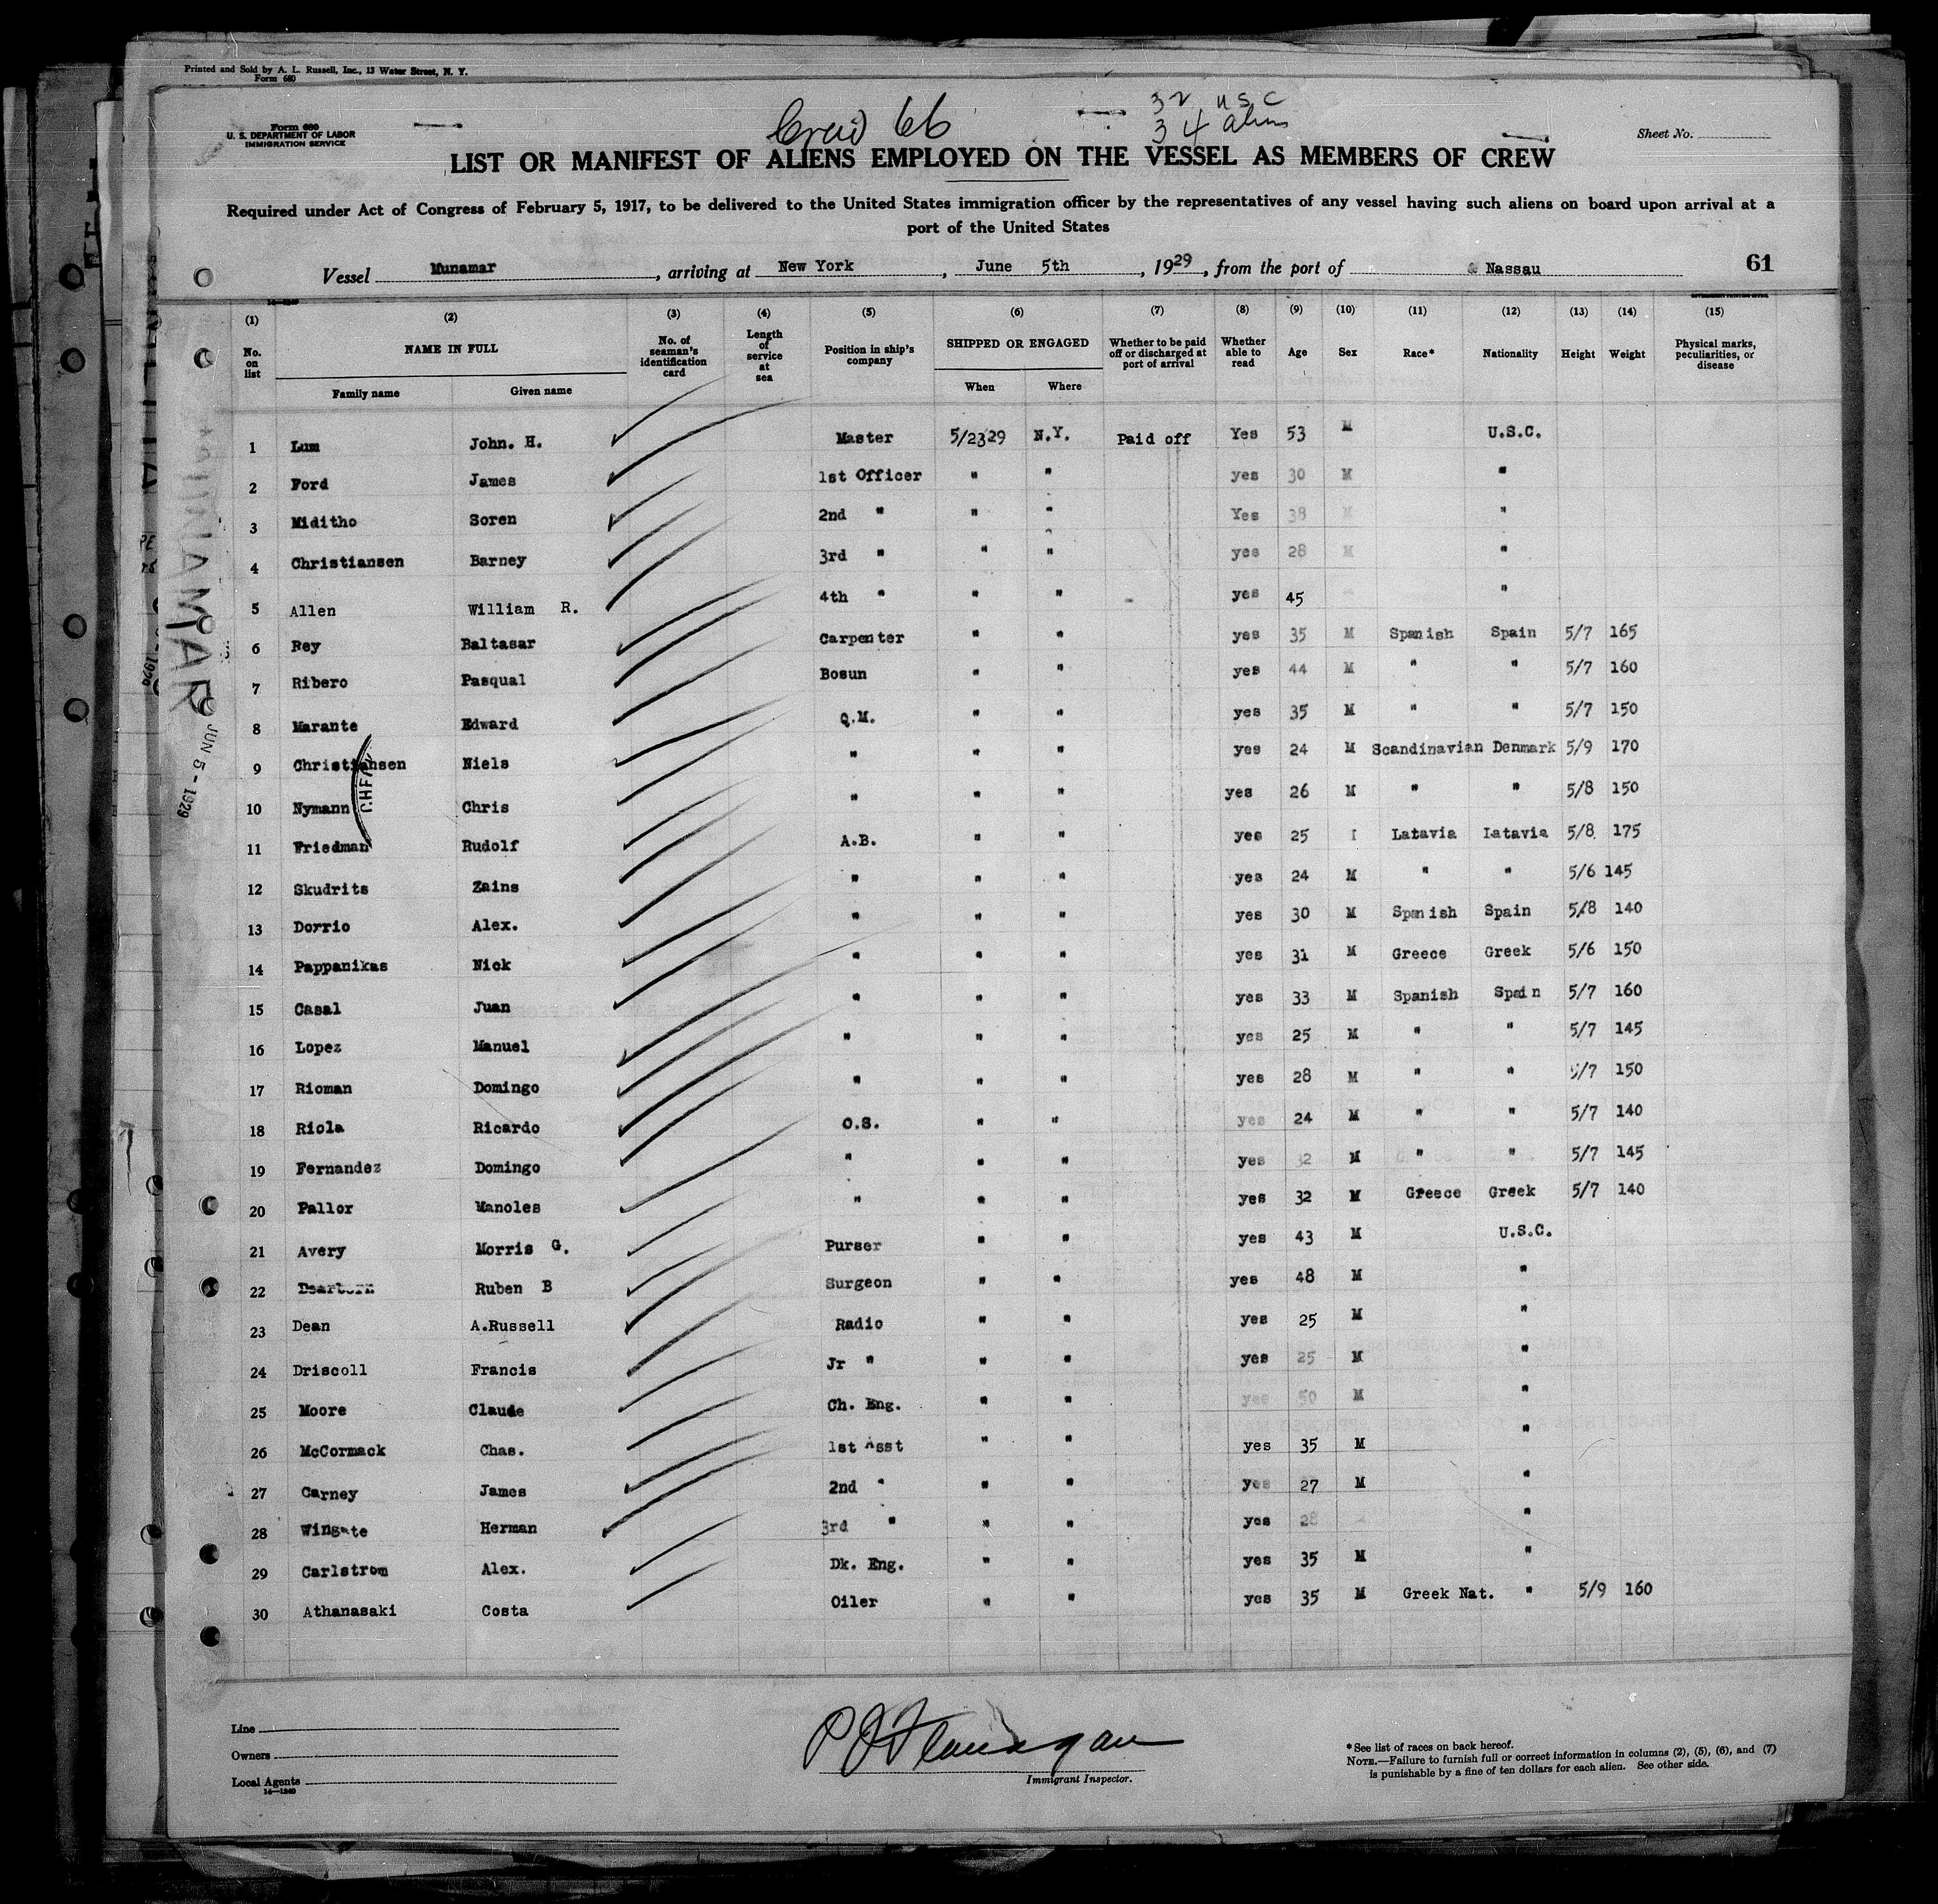 Printed and Sold by A. L. Russell, Inc., 13 Water Street, N. Y.
Form 680
Form 680
U. S. DEPARTMENT OF LABOR
IMMIGRATION SERVICE
Crew 66
32 U S C
34 aliens
Sheet No.
LIST OR MANIFEST OF ALIENS EMPLOYED ON THE VESSEL AS MEMBERS OF CREW
Required under Act of Congress of February 5, 1917, to be delivered to the United States immigration officer by the representatives of any vessel having such aliens on board upon arrival at a
port of the United States
Vessel Munamar, arriving at New York, June 5th, 1929, from the port of Nassau 61
(1) (2) (3) (4) (5) (6) (7) (8) (9) (10) (11) (12) (13) (14) (15)
No. on list NAME IN FULL Family name Given name No. of seaman's identification card Length of service at sea Position in ship's company SHIPPED OR ENGAGED When Where Whether to be paid off or discharged at port of arrival Whether able to read Age Sex Race* Nationality Height Weight Physical marks, peculiarities, or disease
1 Lum John. H. Master 5/2329 N.Y. Paid off Yes 53 M U.S.C.
2 Ford James 1st Officer " " yes 30 M "
3 Miditho Soren 2nd " " " Yes 38 M "
4 Christiansen Barney 3rd " " " yes 28 M "
5 Allen William R. 4th " " " yes 45 "
6 Rey Baltasar Carpenter " " yes 35 M Spanish Spain 5/7 165
7 Ribero Pasqual Bosun " " yes 44 M " " 5/7 160
8 Marante Edward Q.M. " " yes 35 M " " 5/7 150
9 Christiansen Niels " " " yes 24 M Scandinavian Denmark 5/9 170
10 Nymann Chris " " " yes 26 M " " 5/8 150
11 Friedman Rudolf A.B. " " yes 25 Latavia Latavia 5/8 175
12 Skudrits Zains " " " yes 24 M " " 5/6 145
13 Dorrio Alex. " " " yes 30 M Spanish Spain 5/8 140
14 Pappanikas Nick " " " yes 31 M Greece Greek 5/6 150
15 Casal Juan " " " yes 33 M Spanish Spain 5/7 160
16 Lopez Manuel " " " yes 25 M " " 5/7 145
17 Rioman Domingo " " " yes 28 M " " 5/7 150
18 Riola Ricardo O.S. " " yes 24 M " " 5/7 140
19 Fernandez Domingo " " " yes 32 M " " 5/7 145
20 Pallor Manoles " " " yes 32 M Greece Greek 5/7 140
21 Avery Morris G. Purser " " yes 43 M U.S.C.
22 Dearborn Ruben B Surgeon " " yes 48 M "
23 Dean A.Russell Radio " " yes 25 M "
24 Driscoll Francis Jr " " " yes 25 M "
25 Moore Claude Ch. Eng. " " yes 50 M "
26 McCormack Chas. 1st Asst " " yes 35 M "
27 Carney James 2nd " " " yes 27 M "
28 Wingate Herman 3rd " " " yes 28 "
29 Carlstrom Alex. Dk. Eng. " " yes 35 M "
30 Athanasaki Costa Oiler " " yes 35 M Greek Nat. " 5/9 160
MUNAMAR
JUN 5 - 1929
Line
Owners
Local Agents
14—1240
P J Flanagan
Immigrant Inspector.
*See list of races on back hereof.
NOTE.—Failure to furnish full or correct information in columns (2), (5), (6), and (7)
is punishable by a fine of ten dollars for each alien. See other side.